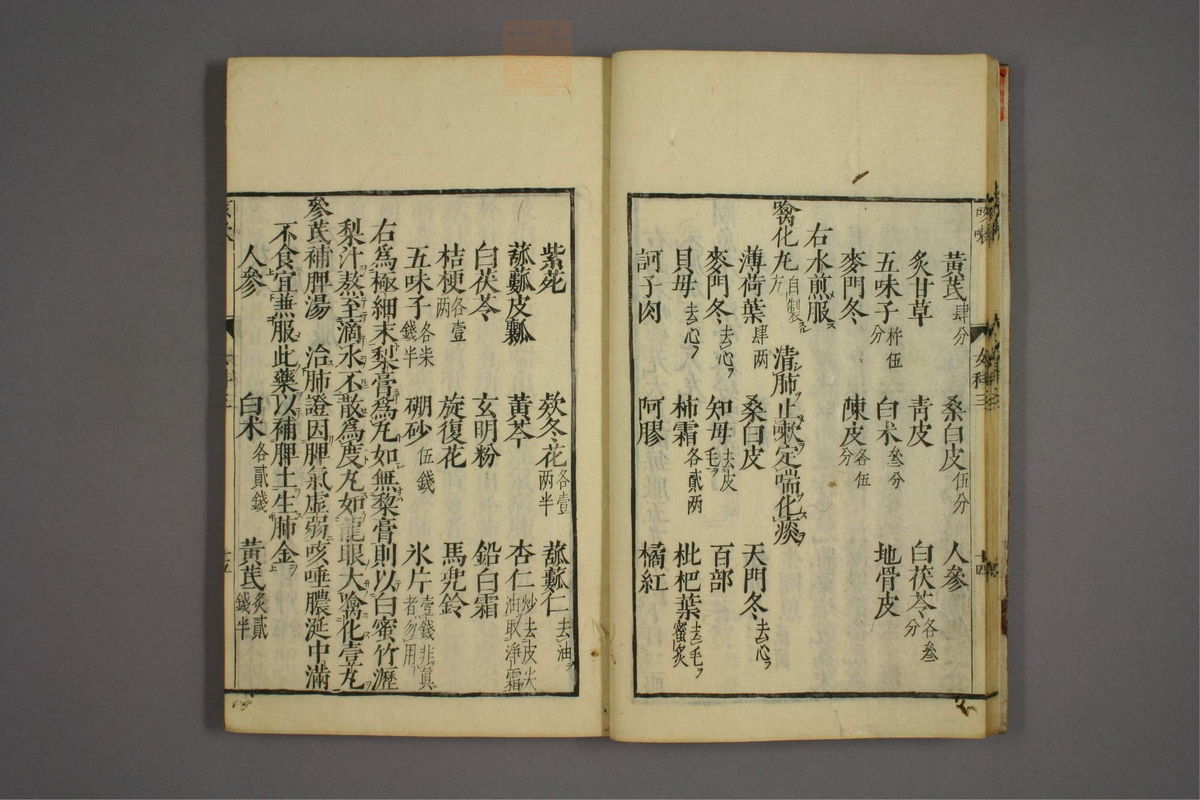 黃芪肆分 桑白皮伍分 人參
炙甘草 靑皮 白茯苓各叁分
五味子杵伍分 白术叁分 地骨皮
麥門冬 陳皮各伍分
右水煎服
噙化丸自製方 清肺止嗽定喘化痰
薄荷葉肆两 桑白皮 天門冬去心ヲ
麥門冬去心ヲ 知母去皮毛ヲ 百部
貝母去心ヲ 柿霜各貳两 枇杷葉去毛ヲ蜜炙
訶子肉 阿膠 橘紅
女科三
十四
紫菀 欵冬花各壹两半 蓏蔞仁去油ヲ
蓏蔞皮瓤 黃芩 杏仁炒去皮尖油取淨霜
白茯苓 玄明粉 鉛白霜
桔梗各壹两 旋復花 馬兜鈴
五味子各柒錢半 硼砂伍錢 氷片壹錢非眞者勿用
右爲極細末梨膏爲丸如無棃膏則以白蜜竹瀝
梨汁熬至滴水不散爲度丸如龍眼大噙化壹丸
參芪補脾湯 治肺證因脾氣虛弱咳唾膿涎中滿
不食宜兼服此藥以補脾土生肺金
人參 白术各貳錢 黃芪炙貳錢半